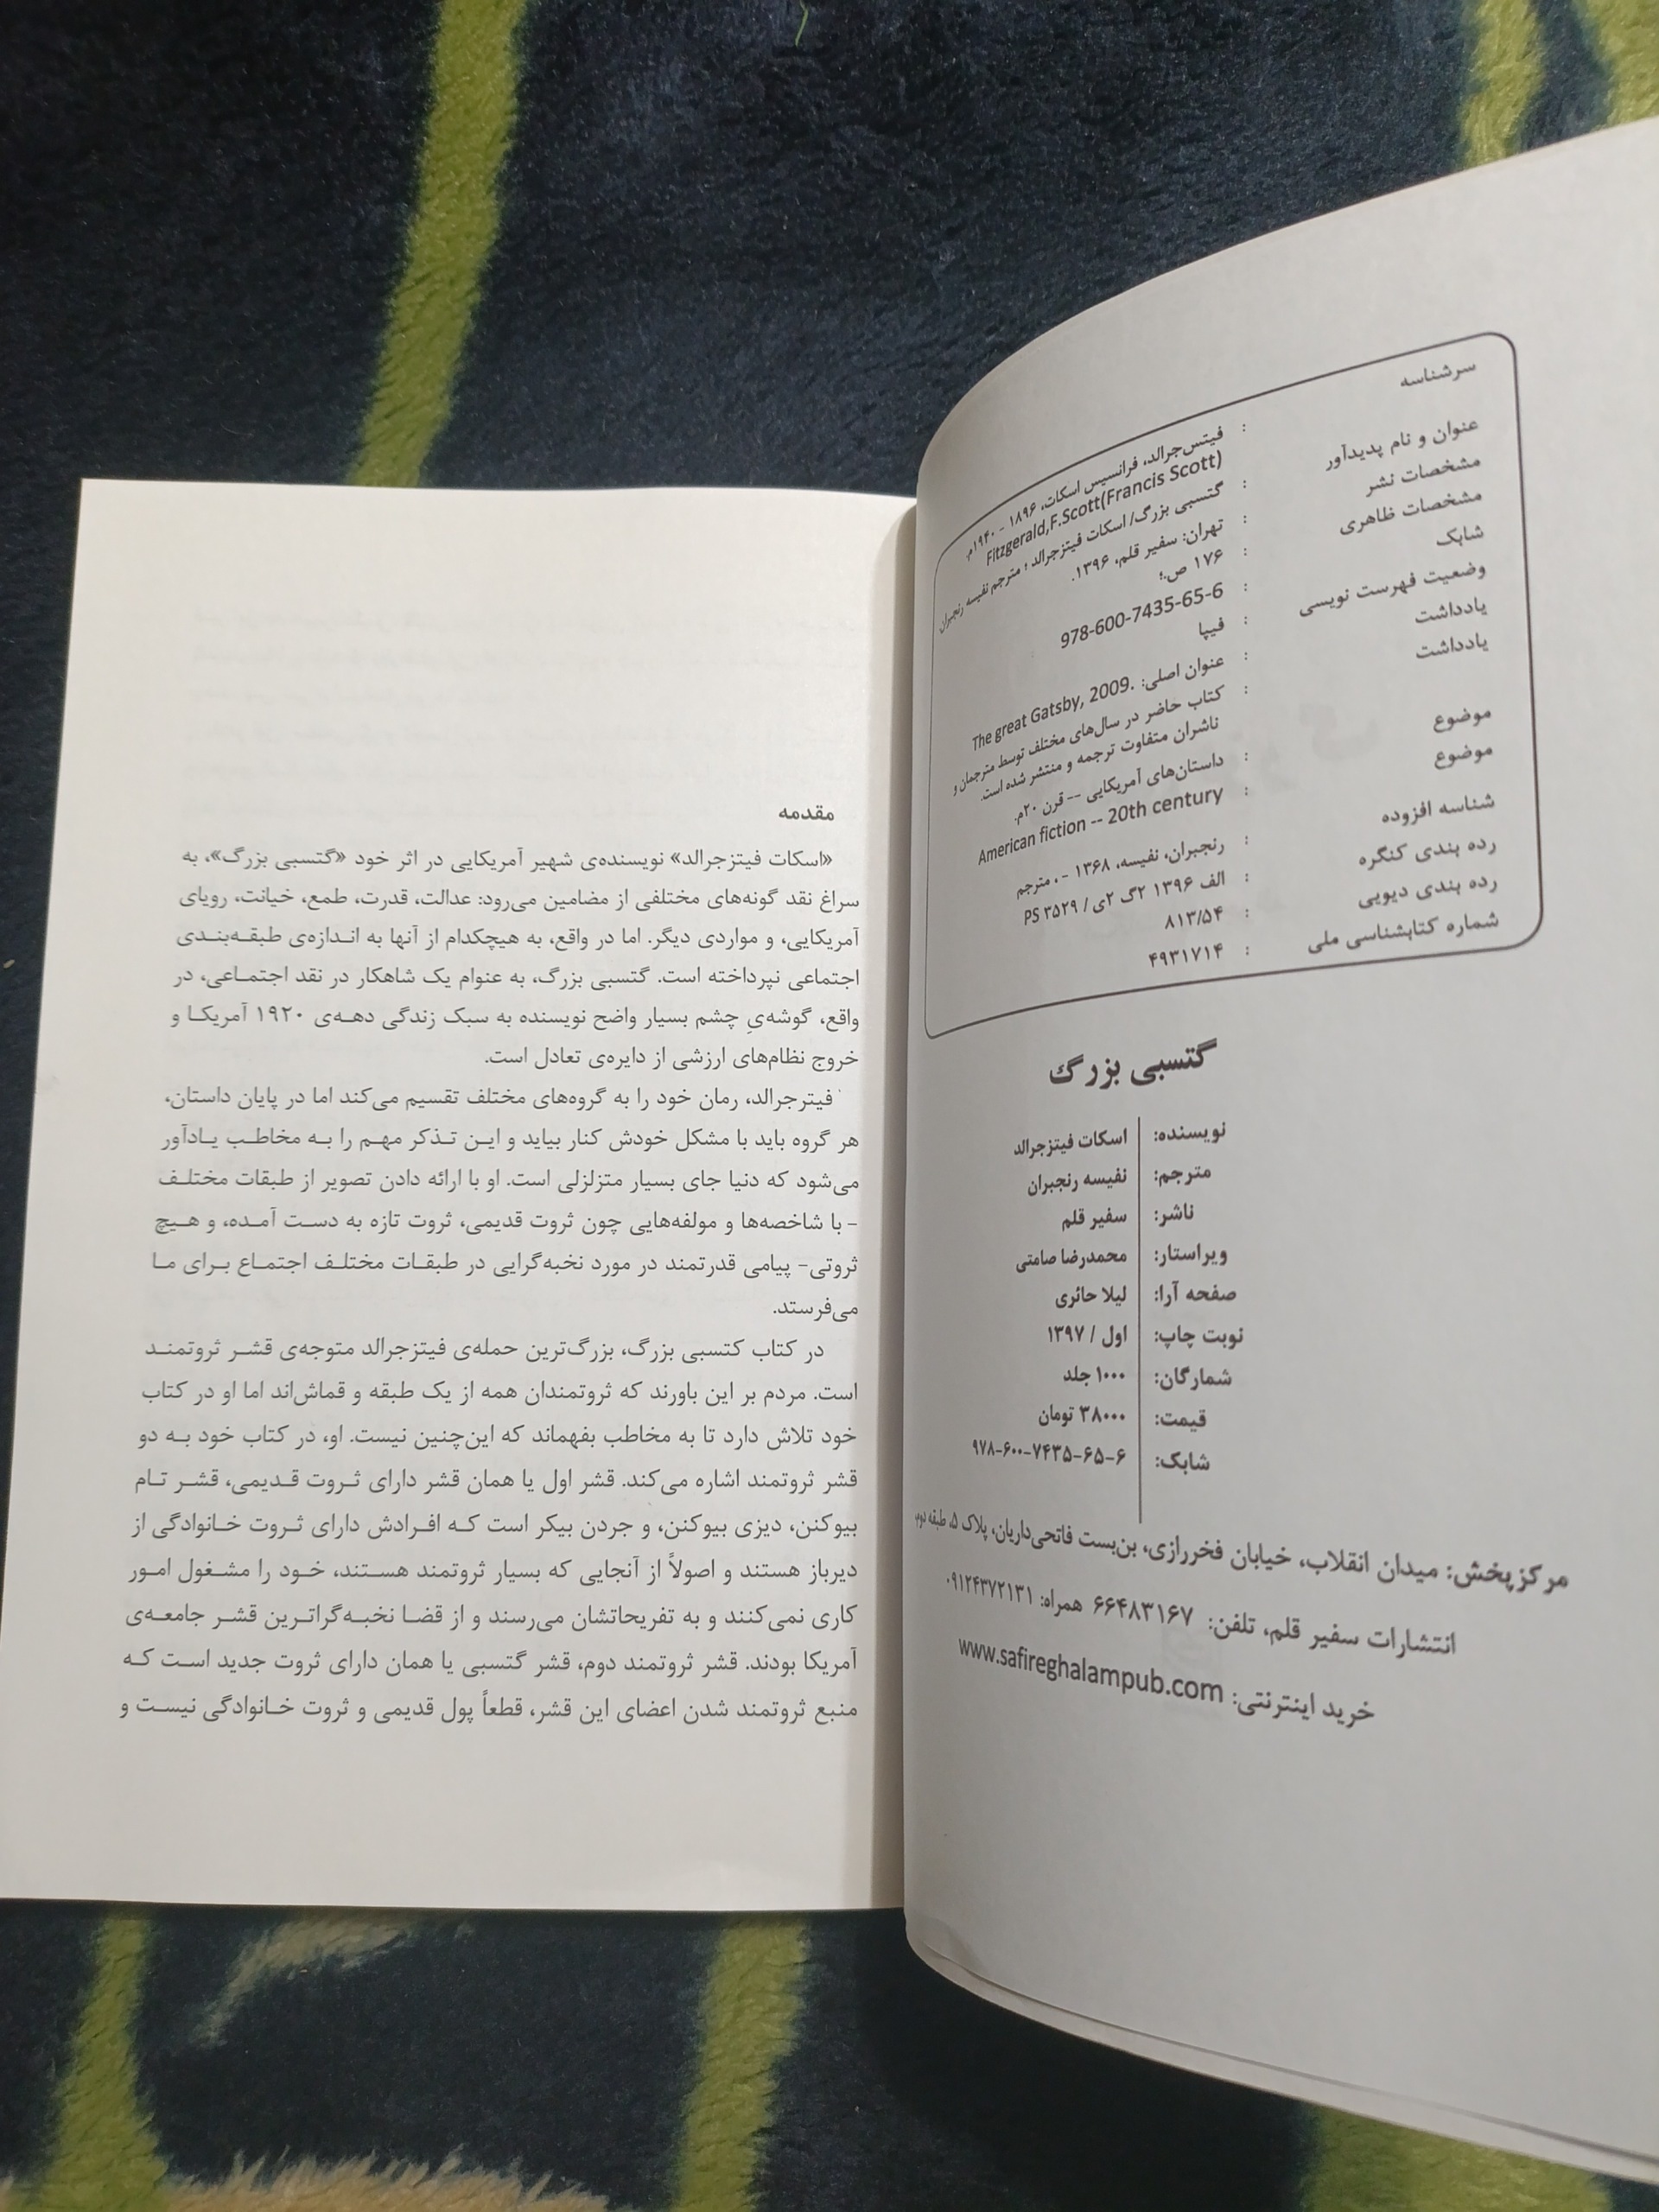 سرشناسه : فیتس‌جرالد، فرانسیس اسکات، ۱۸۹۶ - ۱۹۴۰م.
Fitzgerald,F.Scott(Francis Scott)
عنوان و نام پدیدآور : گتسبی بزرگ/ اسکات فیتزجرالد ؛ مترجم نفیسه رنجبران
مشخصات نشر : تهران: سفیر قلم، ۱۳۹۶.
مشخصات ظاهری : ۱۷۶ ص.؛
شابک : 978-600-7435-65-6
وضعیت فهرست نویسی : فیپا
یادداشت : عنوان اصلی: The great Gatsby, 2009.
یادداشت : کتاب حاضر در سال‌های مختلف توسط مترجمان و
ناشران متفاوت ترجمه و منتشر شده است.
موضوع : داستان‌های آمریکایی -- قرن ۲۰م.
موضوع : American fiction -- 20th century
شناسه افزوده : رنجبران، نفیسه، ۱۳۶۸ - ، مترجم
رده بندی کنگره : الف ۱۳۹۶ ۲گ ۲ی / PS ۳۵۲۹
رده بندی دیویی : ۸۱۳/۵۴
شماره کتابشناسی ملی : ۴۹۳۱۷۱۴
گتسبی بزرگ
نویسنده: اسکات فیتزجرالد
مترجم: نفیسه رنجبران
ناشر: سفیر قلم
ویراستار: محمدرضا صامتی
صفحه آرا: لیلا حائری
نوبت چاپ: اول / ۱۳۹۷
شمارگان: ۱۰۰۰ جلد
قیمت: ۳۸۰۰۰ تومان
شابک: ۹۷۸-۶۰۰-۷۴۳۵-۶۵-۶
مرکز پخش: میدان انقلاب، خیابان فخررازی، بن‌بست فاتحی‌داریان، پلاک ۵، طبقه دوم،
انتشارات سفیر قلم، تلفن: ۶۶۴۸۳۱۶۷ همراه: ۰۹۱۲۴۳۷۲۱۳۱
خرید اینترنتی: www.safireghalampub.com
مقدمه
«اسکات فیتزجرالد» نویسنده‌ی شهیر آمریکایی در اثر خود «گتسبی بزرگ»، به
سراغ نقد گونه‌های مختلفی از مضامین می‌رود: عدالت، قدرت، طمع، خیانت، رویای
آمریکایی، و مواردی دیگر. اما در واقع، به هیچکدام از آنها به اندازه‌ی طبقه‌بندی
اجتماعی نپرداخته است. گتسبی بزرگ، به عنوام یک شاهکار در نقد اجتماعی، در
واقع، گوشه‌یِ چشم بسیار واضح نویسنده به سبک زندگی دهه‌ی ۱۹۲۰ آمریکا و
خروج نظام‌های ارزشی از دایره‌ی تعادل است.
فیترجرالد، رمان خود را به گروه‌های مختلف تقسیم می‌کند اما در پایان داستان،
هر گروه باید با مشکل خودش کنار بیاید و این تذکر مهم را به مخاطب یادآور
می‌شود که دنیا جای بسیار متزلزلی است. او با ارائه دادن تصویر از طبقات مختلف
- با شاخصه‌ها و مولفه‌هایی چون ثروت قدیمی، ثروت تازه به دست آمده، و هیچ
ثروتی- پیامی قدرتمند در مورد نخبه‌گرایی در طبقات مختلف اجتماع برای ما
می‌فرستد.
در کتاب کتسبی بزرگ، بزرگ‌ترین حمله‌ی فیتزجرالد متوجه‌ی قشر ثروتمند
است. مردم بر این باورند که ثروتمندان همه از یک طبقه و قماش‌اند اما او در کتاب
خود تلاش دارد تا به مخاطب بفهماند که این‌چنین نیست. او، در کتاب خود به دو
قشر ثروتمند اشاره می‌کند. قشر اول یا همان قشر دارای ثروت قدیمی، قشر تام
بیوکنن، دیزی بیوکنن، و جردن بیکر است که افرادش دارای ثروت خانوادگی از
دیرباز هستند و اصولاً از آنجایی که بسیار ثروتمند هستند، خود را مشغول امور
کاری نمی‌کنند و به تفریحاتشان می‌رسند و از قضا نخبه‌گراترین قشر جامعه‌ی
آمریکا بودند. قشر ثروتمند دوم، قشر گتسبی یا همان دارای ثروت جدید است که
منبع ثروتمند شدن اعضای این قشر، قطعاً پول قدیمی و ثروت خانوادگی نیست و